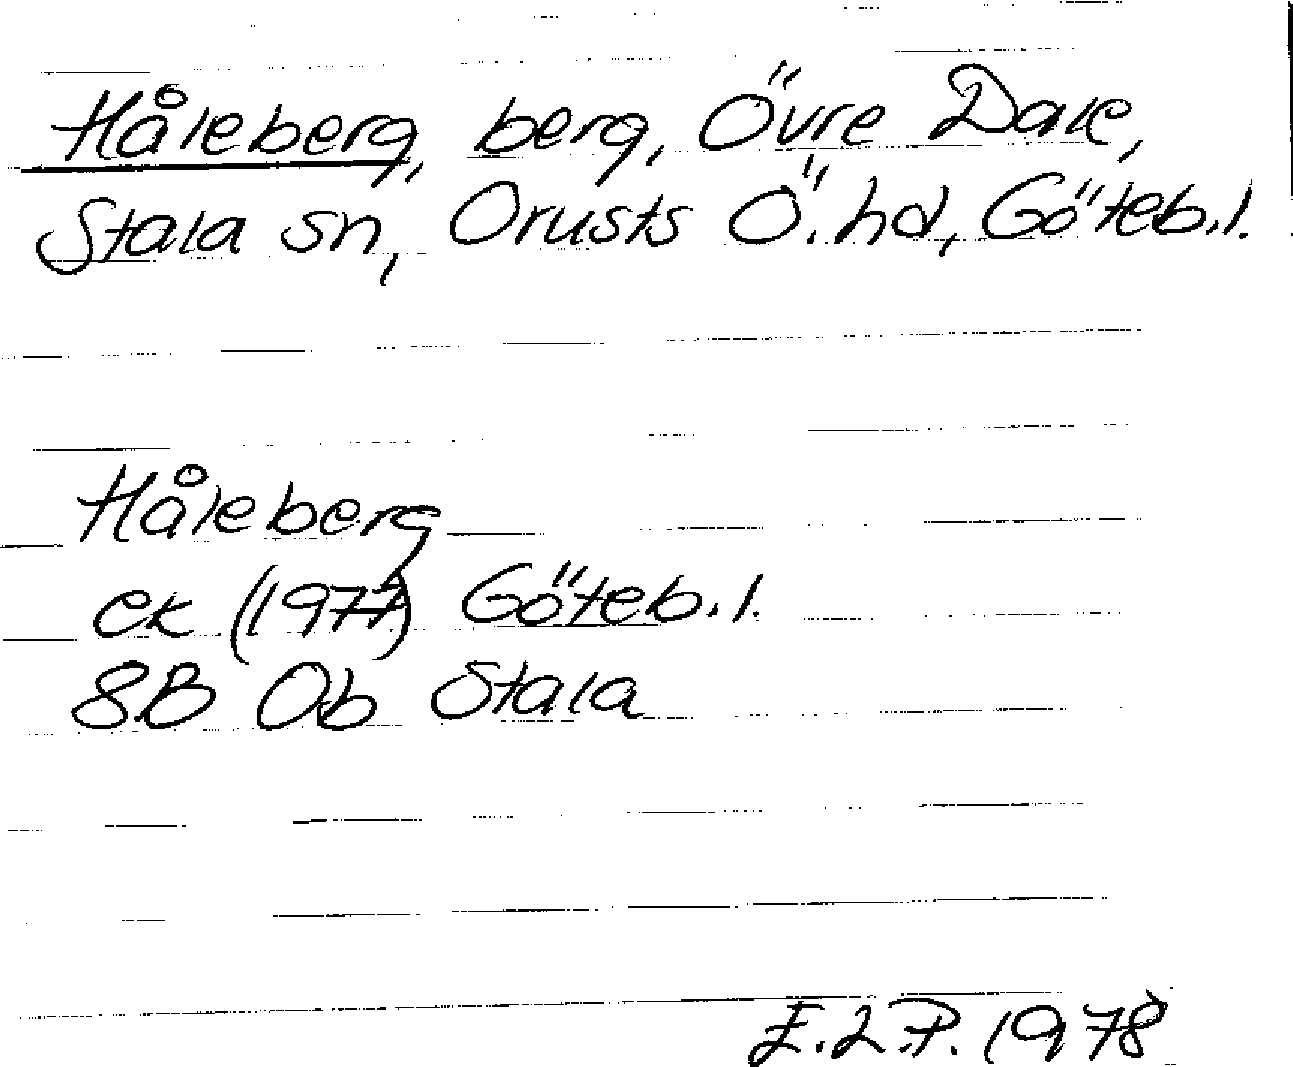 Håleberg, berg, Övre Dale,
Stala sn, Orusts Ö. hd, Göteb. l.
Håleberg
ek (1977) Göteb. l.
8B 0b Stala
E.L.P. 1978